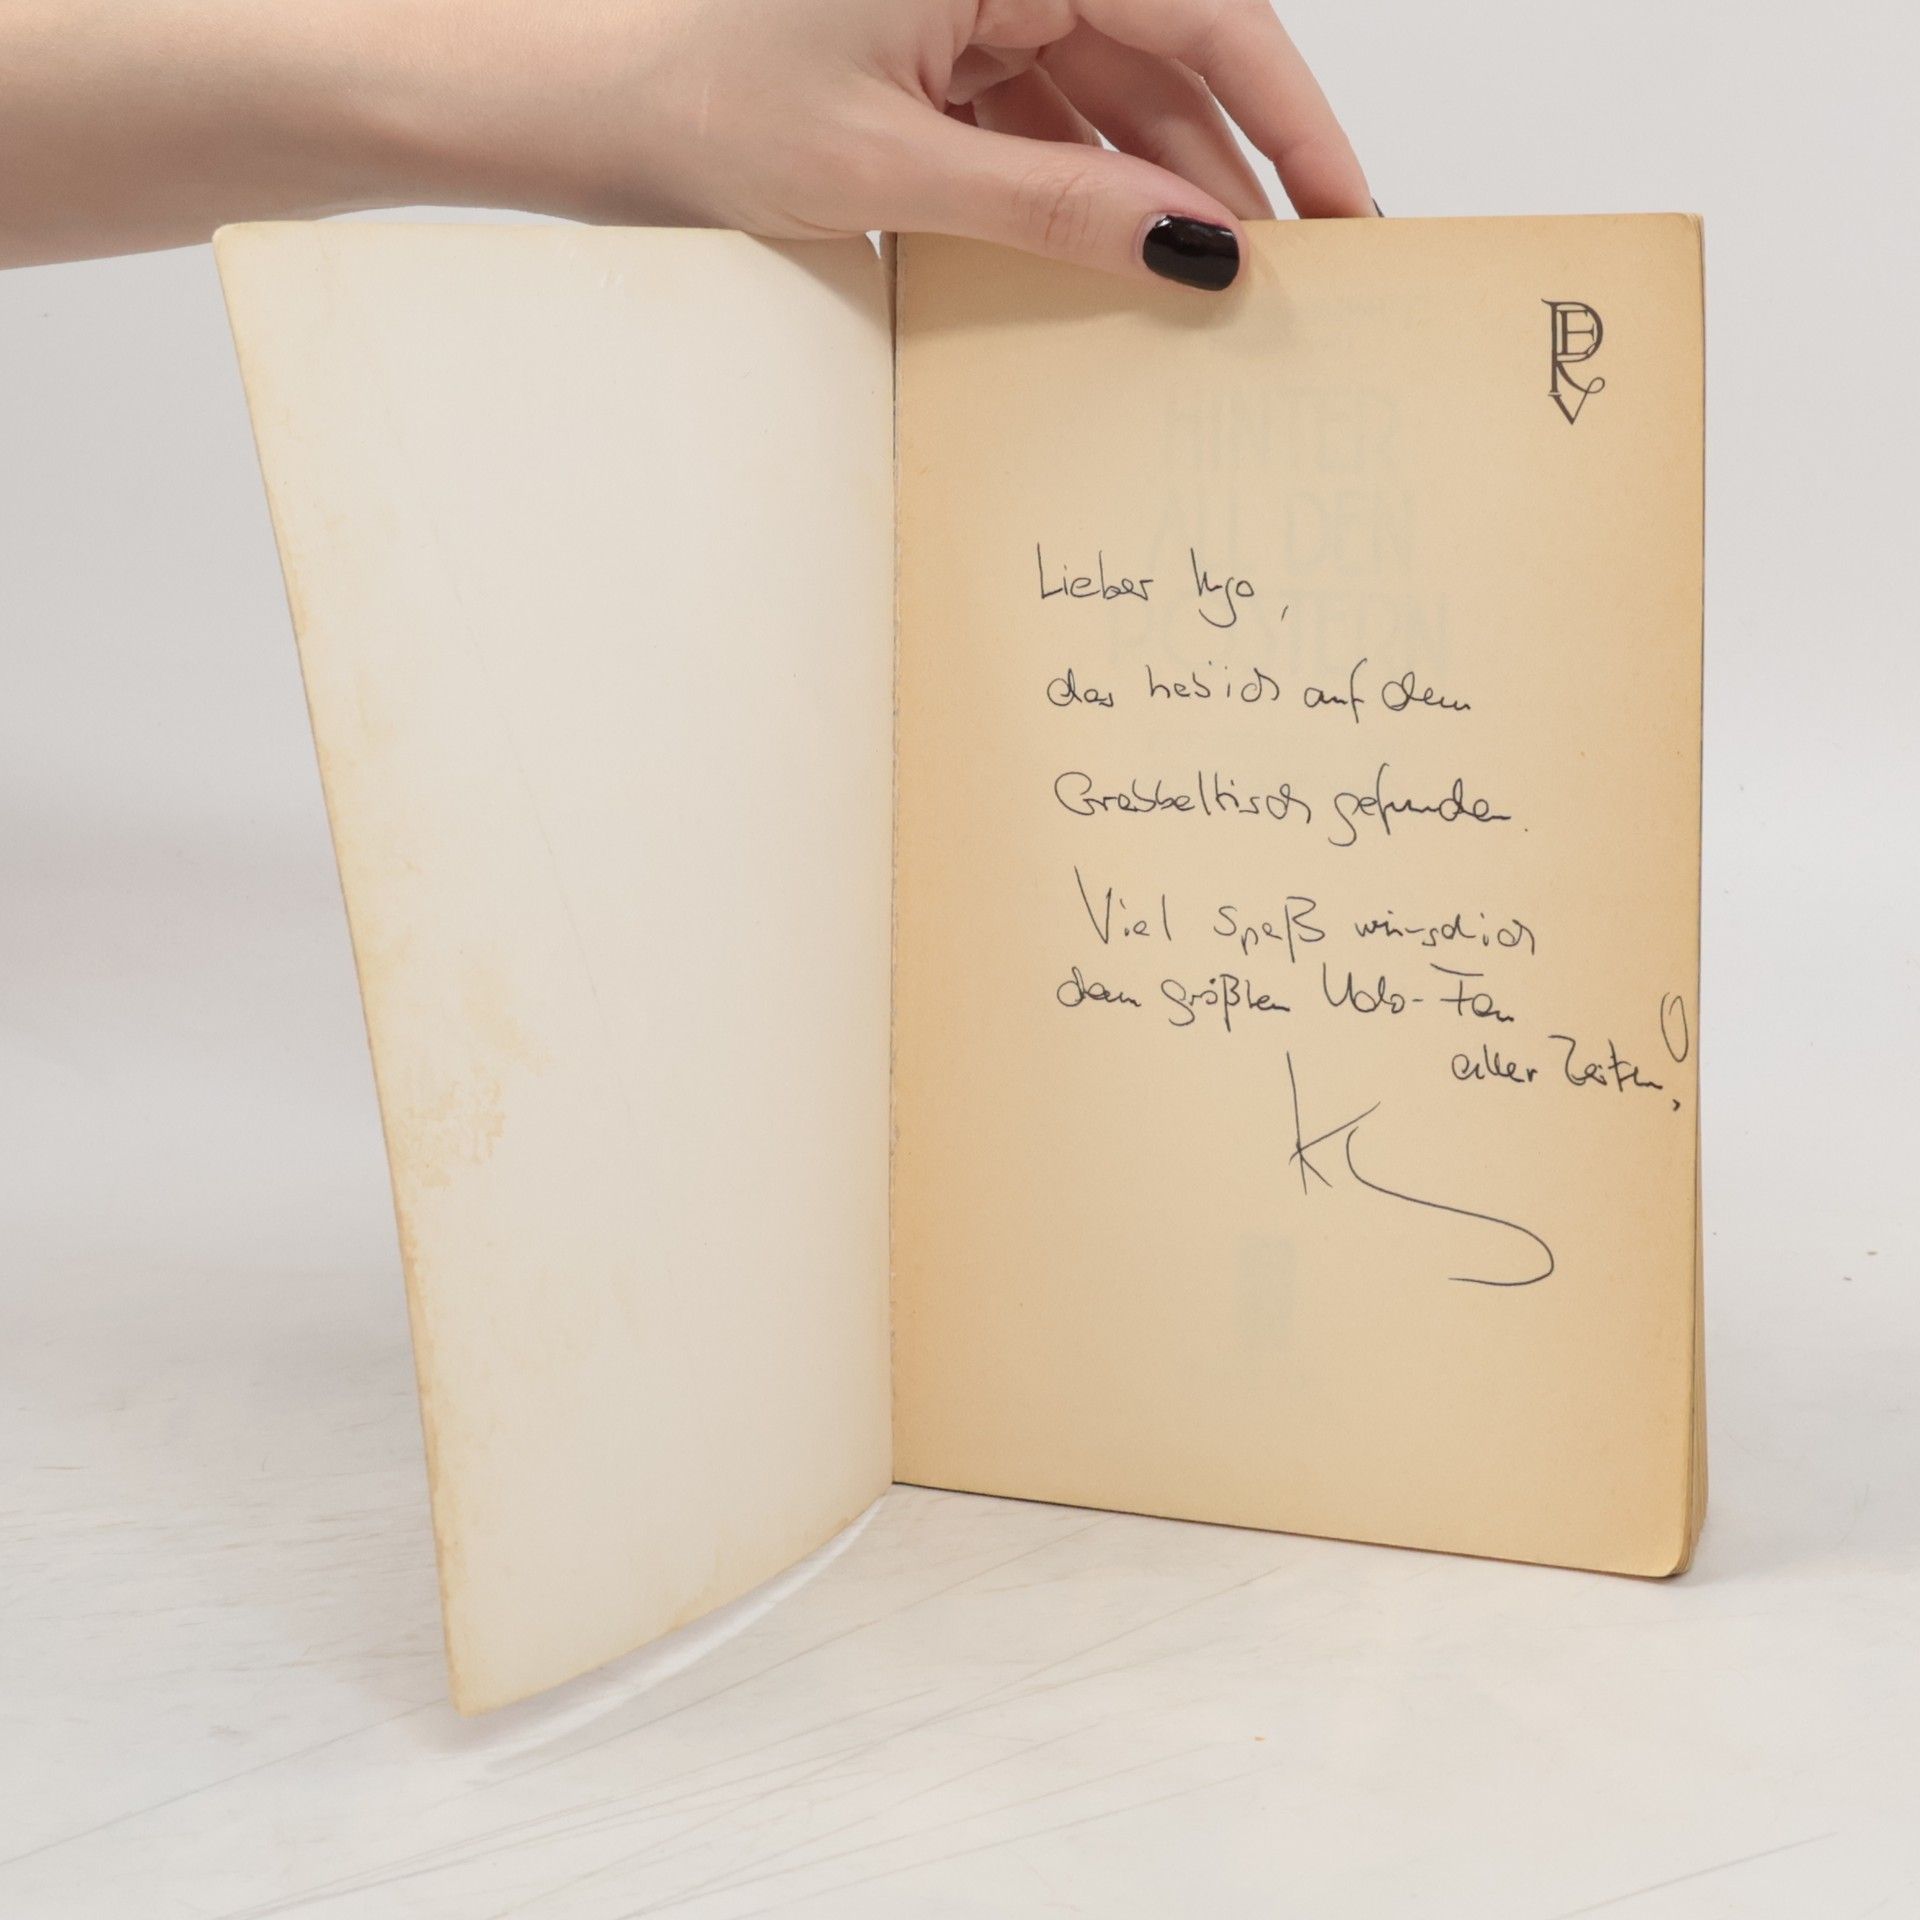 PERV
HINTER
ALL DEN
POSTERN
Lieber Ingo,
das hab ich auf dem
Grabbeltisch gefunden.
Viel Spaß wünsch ich
dem größten Udo-Fan
aller Zeiten!
KS